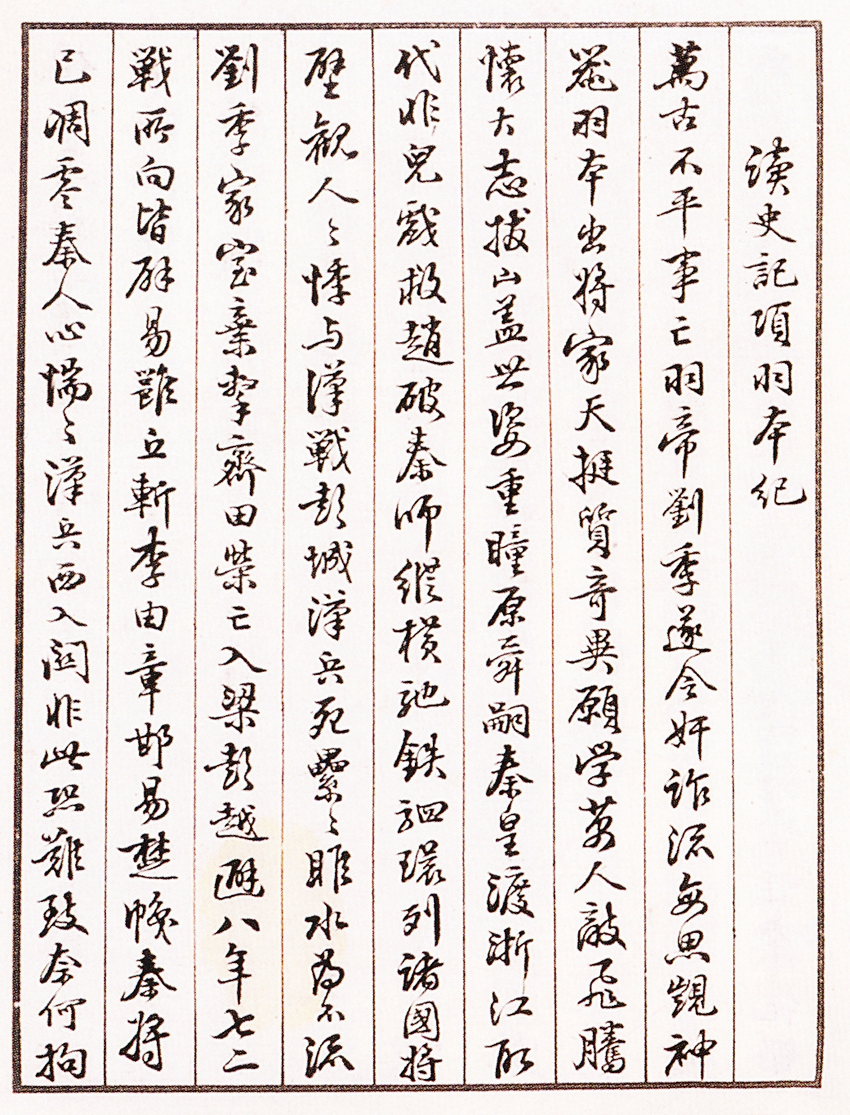 讀史記項羽本紀
萬古不平事亡羽帝劉季遂令奸詐流每思覬神
器羽本出將家天挺質奇異願学萬人敵飛騰
懷大志拔山蓋世姿重瞳原舜嗣秦皇渡浙江取
代非兒戲救趙破秦師縱橫馳鉄駟環列諸國將
壁觀人々悸与漢戰彭城漢兵死纍々睢水為不流
劉季家室棄擊齊田榮亡入梁彭越避八年七二
戰所向皆辟易雍丘斬李由章邯易楚幟秦將
已凋零秦人心惴々漢兵西入関非此恐難致奈何拘